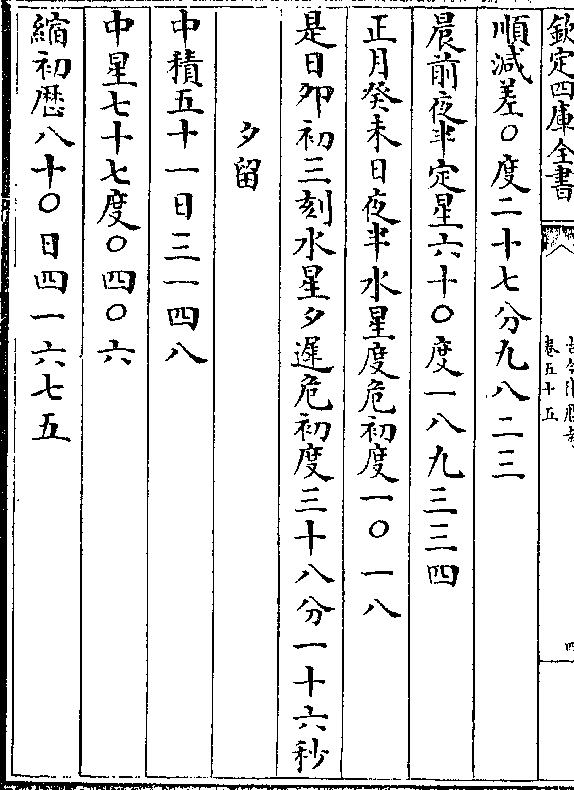 欽定四庫全書
卷五十五
四
順減差〇度二十七分九八二三
晨前夜半定星六十〇度一八九三三四
正月癸未日夜半水星度危初度一〇一八
是日卯初三刻水星夕遲危初度三十八分一十六秒
夕留
中積五十一日三一四八
中星七十七度〇四〇六
縮初歷八十〇日四一六七五